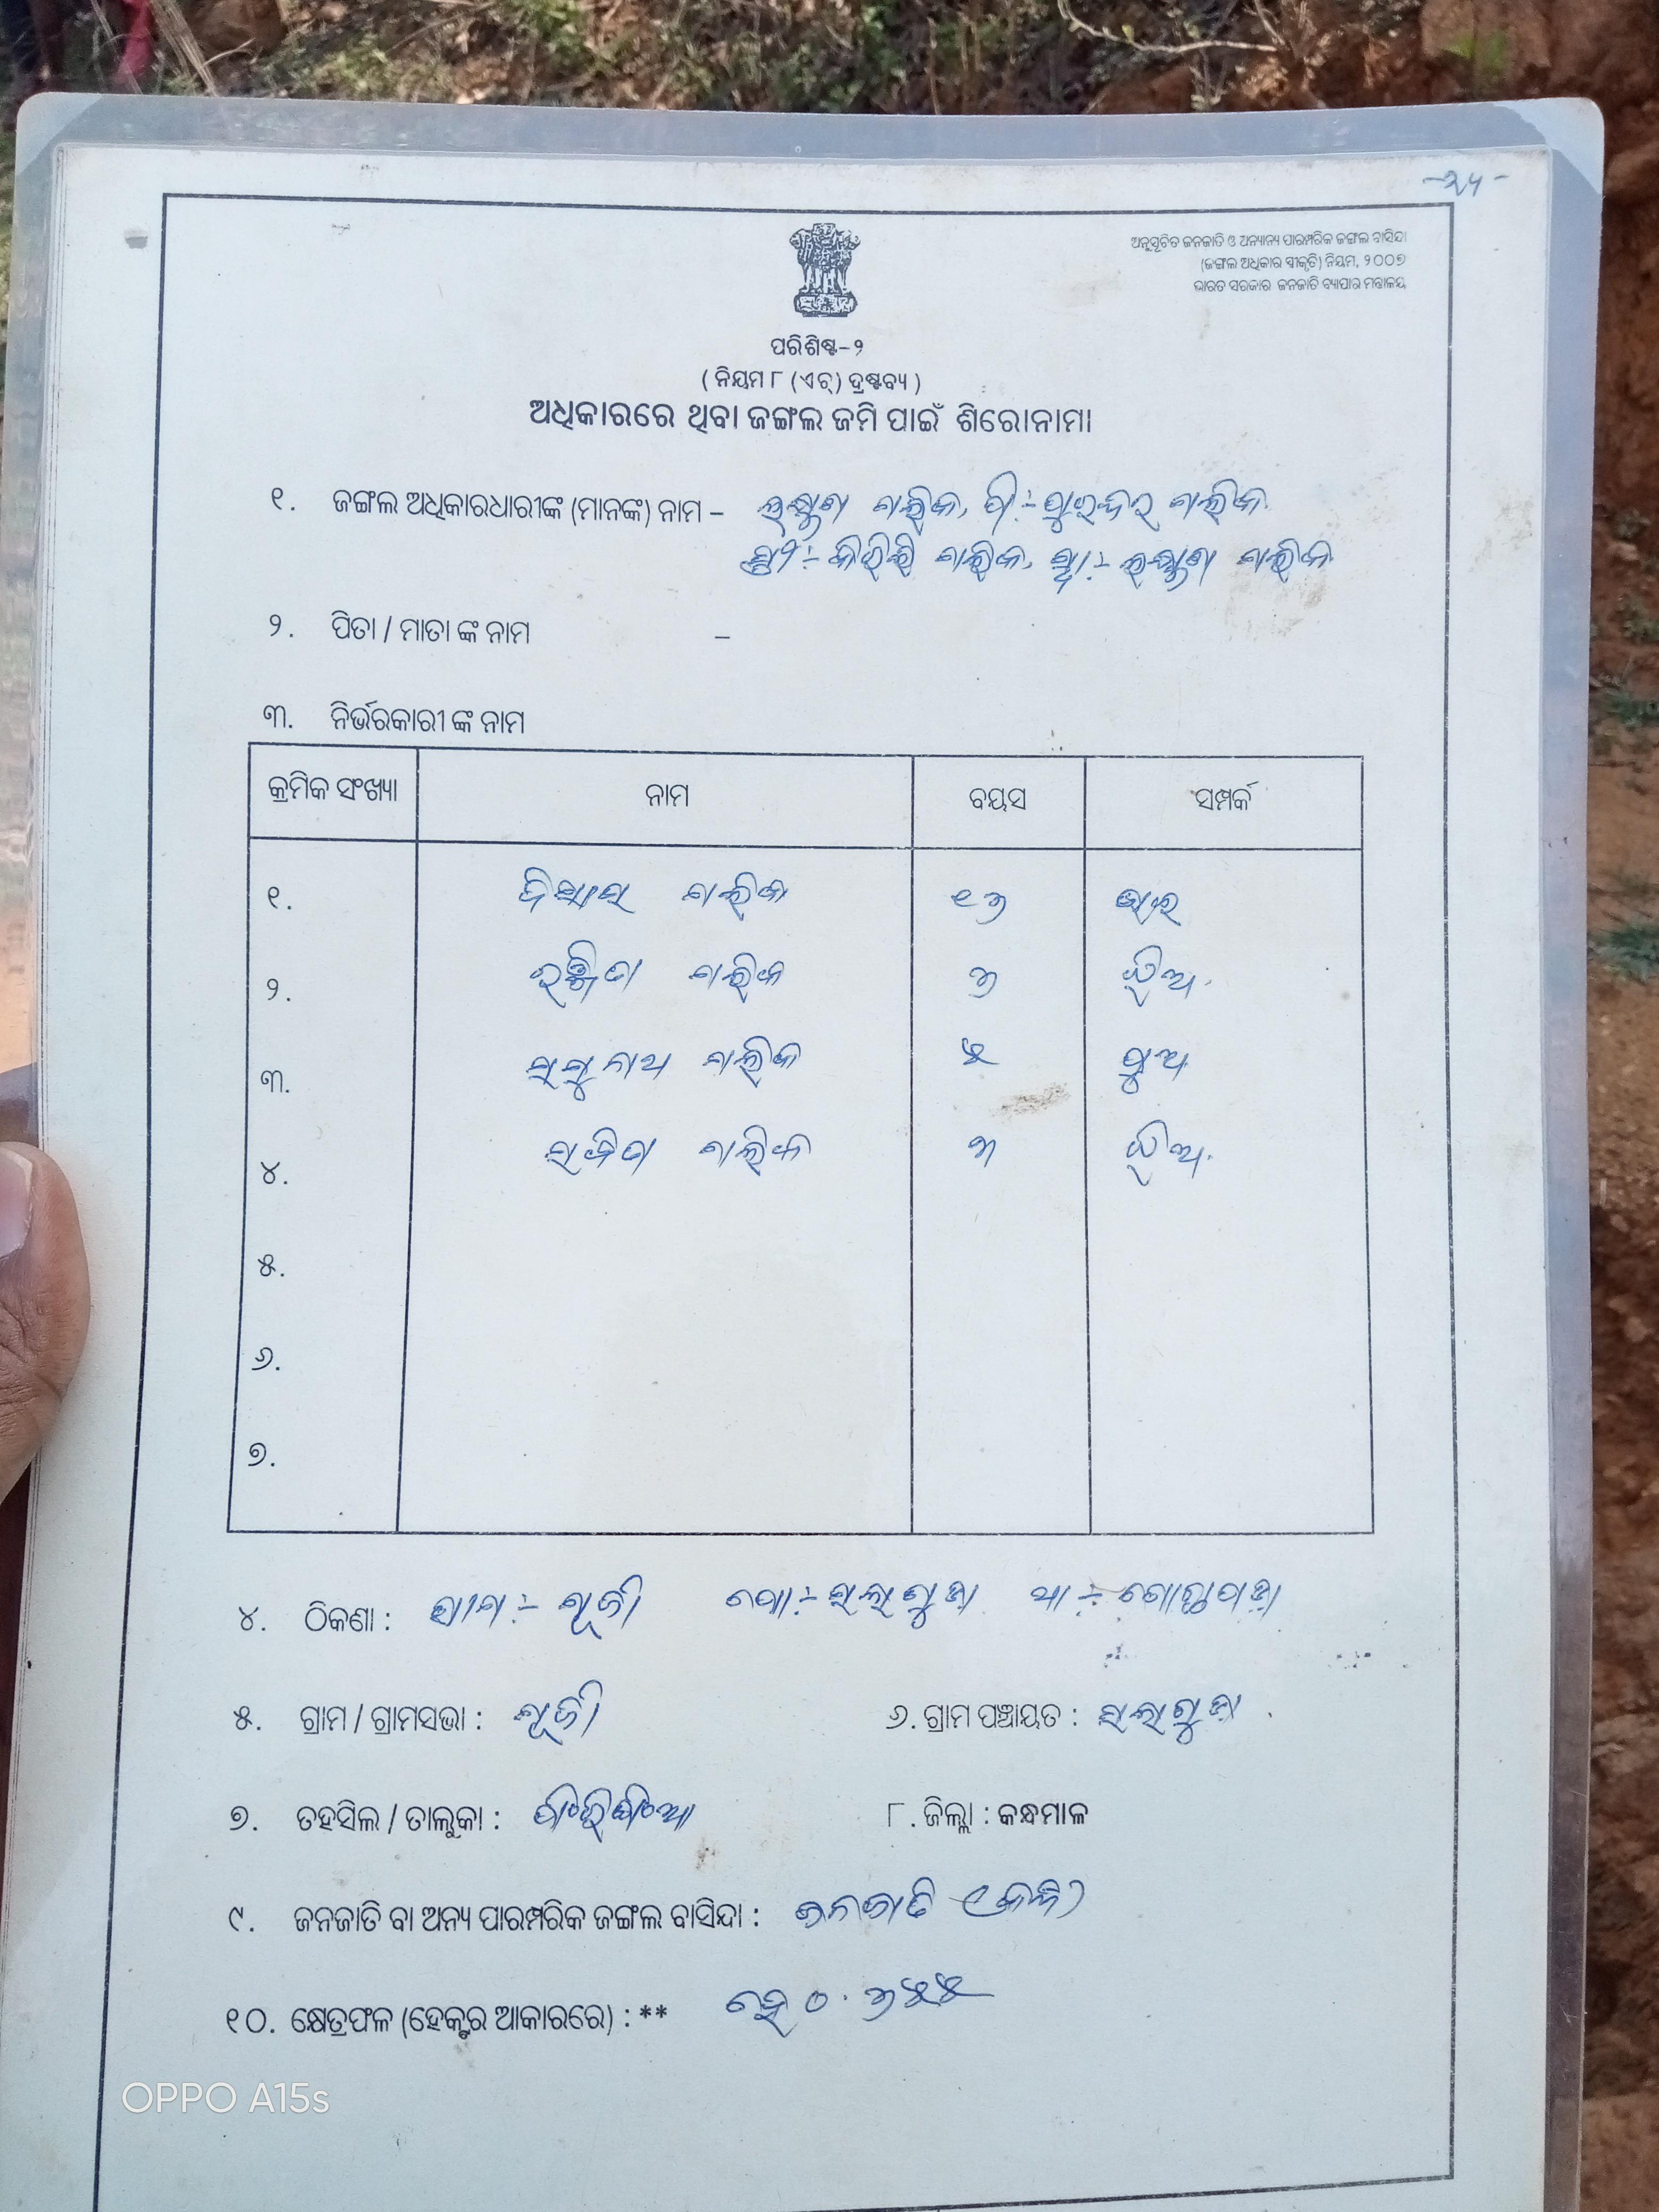 ଅନୁସୂଚିତ ଜନଜାତି ଓ ଅନ୍ୟାନ୍ୟ ପାରମ୍ପରିକ ଜଙ୍ଗଲ ବାସିନ୍ଦା
(ଜଙ୍ଗଲ ଅଧିକାର ସ୍ୱୀକୃତି) ନିୟମ, ୨୦୦୭
ଭାରତ ସରକାର ଜନଜାତି ବ୍ୟାପାର ମନ୍ତ୍ରାଳୟ
ପରିଶିଷ୍ଟ-୨
( ନିୟମ ୮ (ଏଚ୍) ଦ୍ରଷ୍ଟବ୍ୟ )
ଅଧିକାରରେ ଥିବା ଜଙ୍ଗଲ ଜମି ପାଇଁ ଶିରୋନାମା
୧. ଜଙ୍ଗଲ ଅଧିକାରଧାରୀଙ୍କ (ମାନଙ୍କ) ନାମ – ଲକ୍ଷ୍ମଣ ମଲିକ, ପି:- ପୁରନ୍ଦର ମଲିକ
ସ୍ତ୍ରୀ:- ମଲିକ, ସ୍ୱା:- ଲକ୍ଷ୍ମଣ ମଲିକ
୨. ପିତା / ମାତା ଙ୍କ ନାମ –
୩. ନିର୍ଭରକାରୀ ଙ୍କ ନାମ
କ୍ରମିକ ସଂଖ୍ୟା ନାମ ବୟସ ସମ୍ପର୍କ
୧. ମଲିକ ୧୬ ଭାଇ
୨. ରଞ୍ଜିତା ମଲିକ ୬ ଝିଅ
୩. ରଘୁନାଥ ମଲିକ ୫ ପୁଅ
୪. ମଲିକ ୩ ଝିଅ
୫.
୬.
୭.
୪. ଠିକଣା : ଗ୍ରାମ:- ପୋ:- ସଲାଗୁଡ଼ା ଥା:- ଗୋଛାପଡ଼ା
୫. ଗ୍ରାମ / ଗ୍ରାମସଭା :
୬. ଗ୍ରାମ ପଞ୍ଚାୟତ : ସଲାଗୁଡ଼ା
୭. ତହସିଲ / ତାଲୁକା : ଫିରିଙ୍ଗିଆ
୮. ଜିଲ୍ଲା : କନ୍ଧମାଳ
୯. ଜନଜାତି ବା ଅନ୍ୟ ପାରମ୍ପରିକ ଜଙ୍ଗଲ ବାସିନ୍ଦା : ଜନଜାତି (କନ୍ଧ)
୧୦. କ୍ଷେତ୍ରଫଳ (ହେକ୍ଟର ଆକାରରେ) : ** ହେ ୦.୬୫୫
OPPO A15s